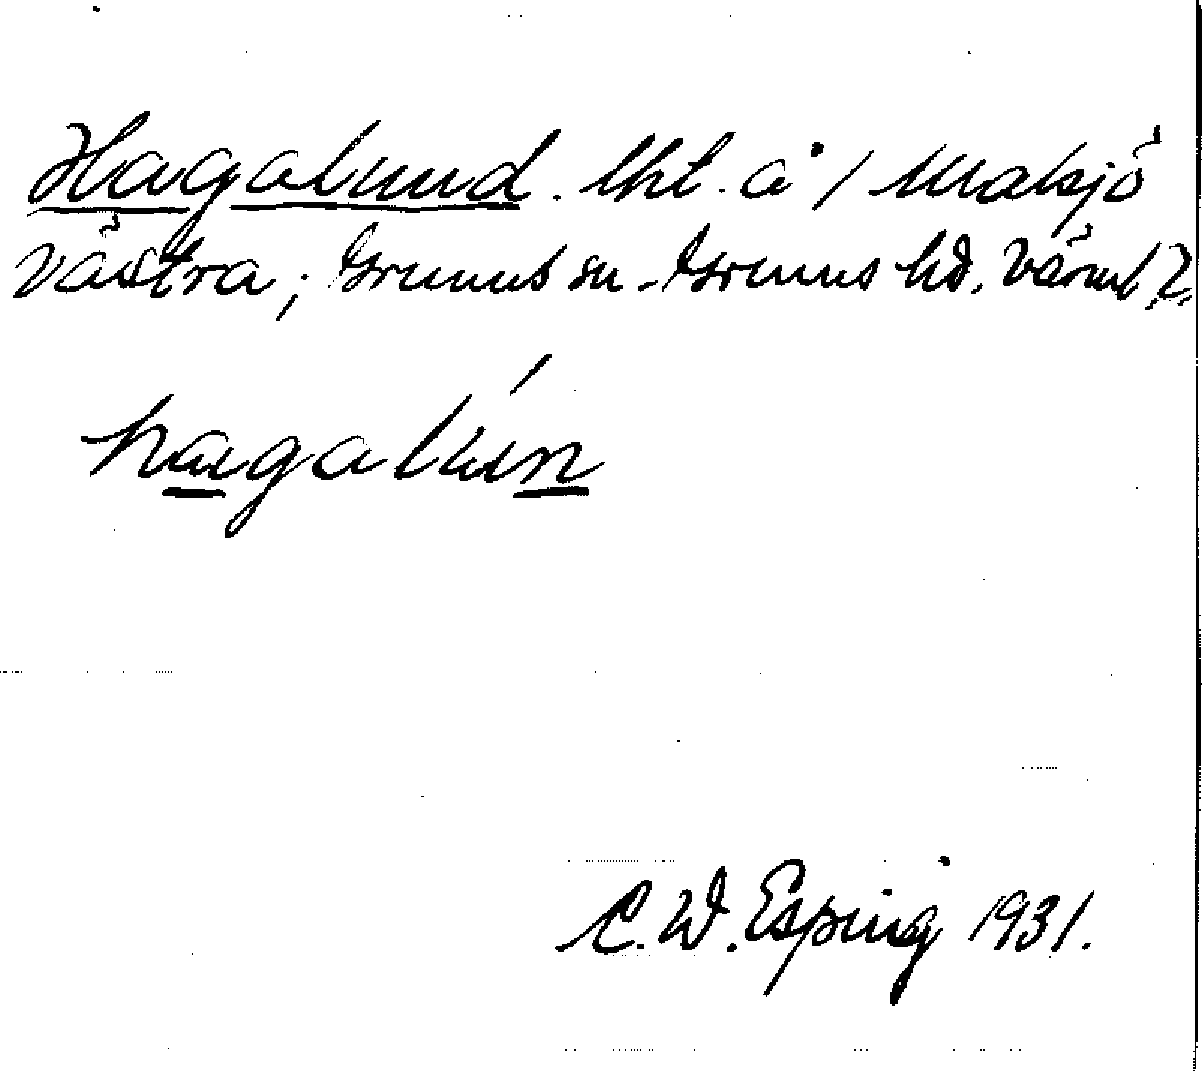 Hagalund. lht. å 1 Maksjö
västra; Grums sn. Grums hd. Värml.
hagalún
C. W. Esping 1931.